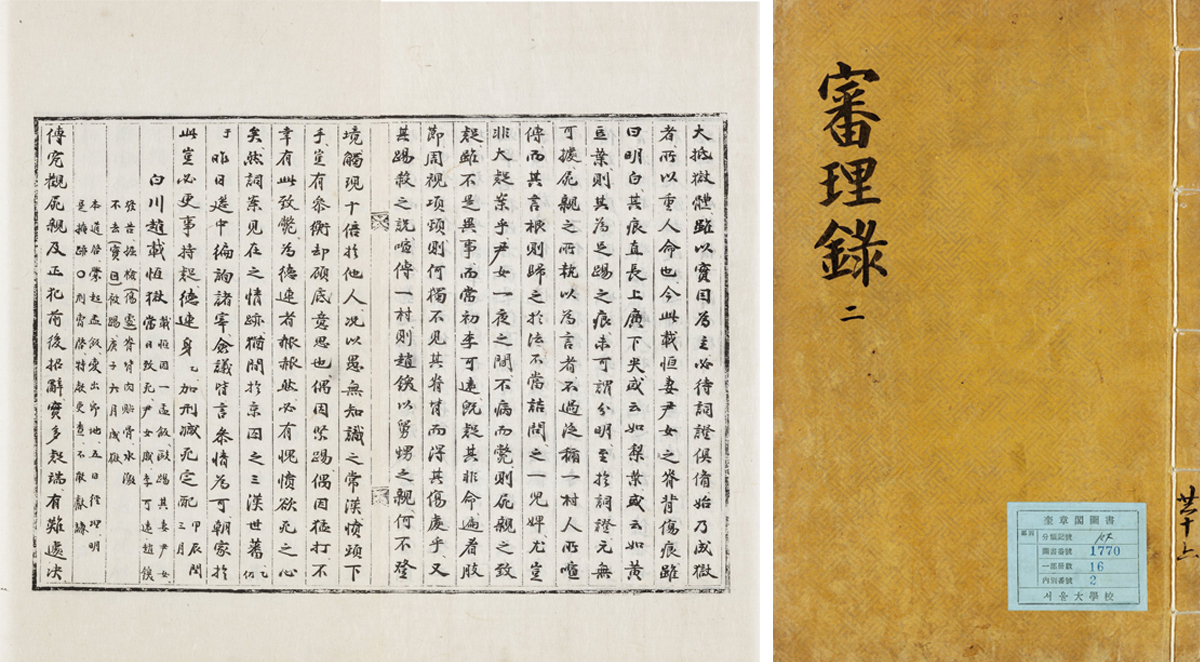 大抵獄體雖以實因爲主必待詞證俱備始乃成獄
者所以重人命也今此載恒妻尹女之脊背傷痕雖
曰明白其痕直長上廣下尖或云如梨葉或云如黃
豆葉則其爲足踢之痕未可謂分明至於詞證元無
可據屍親之所執以爲言者不過泛稱一村人所喧
傳而其言根則歸之於法不當詰問之一兒婢尤豈
非大疑案乎尹女一夜之間不病而斃則屍親之致
疑雖不是異事而當初李可遠旣疑其非命遍看肢
節周視項頸則何獨不見其脊背而得其傷處乎又
其踢殺之說喧傳一村則趙以舅甥之親何不登
境觸現十倍於他人况以愚無知識之常漢憤頭下
手豈有參衡却顧底意思也偶因緊踢偶因猛打不
幸有此致斃爲德連者赧赧然必有愧憤欲死之心
矣然詞案見在之情跡猶間於京囚之三漢世蕃乙仍
于昨日筵中徧詢諸宰僉議皆言參情爲可朝家於
此豈必更事持疑德連身乙加刑減死定配甲辰閏
三月
白川趙載恒獄載恒因一盂飯毆踢其妻尹女
當日致死尹女李可遠趙
發告檢傷處脊背肉貼骨水
不去實因被踢庚子六月成獄
本道啓
傳完觀屍親及正犯前後招辭實多疑端有難遽決
審理錄
二
共十六
奎章閣圖書
分類記號
圖書番號 1770
一部冊數 16
內別番號 2
서울大學校